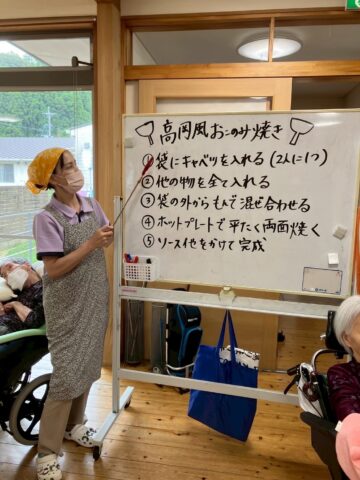 高岡風おこのみ焼き
①袋にキャベツを入れる(2人に1つ)
②他の物を全て入れる
③袋の外からもんで混ぜ合わせる
④ホットプレートで平たく両面焼く
⑤ソース他をかけて完成